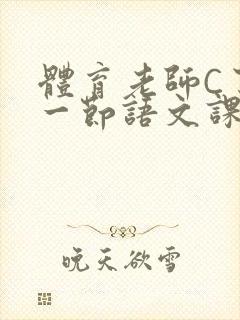 體育老師C
一節語文課
晚天欲雪